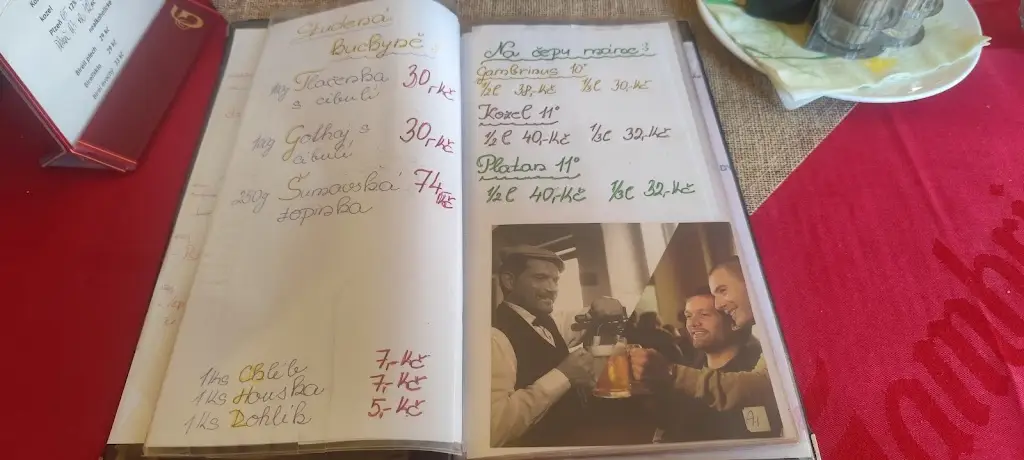 Studená
Kuchyně
Tlačenka 30,-Kč
s cibulí
Gothaj s 30,-Kč
cibulí
250g Šumavská 74,-Kč
topinka
1ks Chléb 7,-Kč
1ks Houska 7,-Kč
1ks Rohlík 5,-Kč
Na čepu máme:
Gambrinus 10°
1/2l 38,-Kč 1/3l 30,-Kč
Kozel 11°
1/2l 40,-Kč 1/3l 32,-Kč
Platan 11°
1/2l 40,-Kč 1/3l 32,-Kč